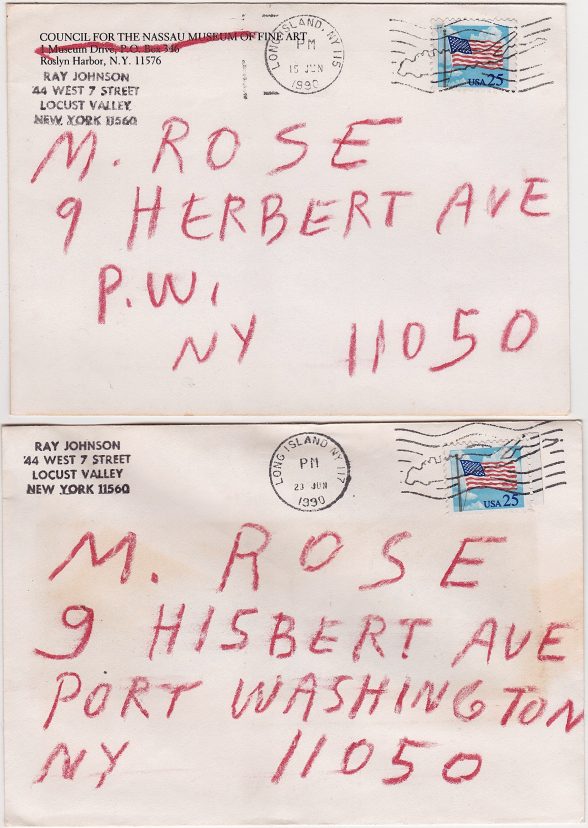 COUNCIL FOR THE NASSAU MUSEUM OF FINE ART
1 Museum Drive, P.O. Box 346
Roslyn Harbor, N.Y. 11576
RAY JOHNSON
44 WEST 7 STREET
LOCUST VALLEY
NEW YORK 11560
LONG ISLAND, NY 115
PM
15 JUN
1990
USA 25
M. ROSE
9 HERBERT AVE
P.W.
NY 11050
RAY JOHNSON
44 WEST 7 STREET
LOCUST VALLEY
NEW YORK 11560
LONG ISLAND NY 117
PM
23 JUN
1990
USA 25
M. ROSE
9 HISBERT AVE
PORT WASHINGTON
NY 11050